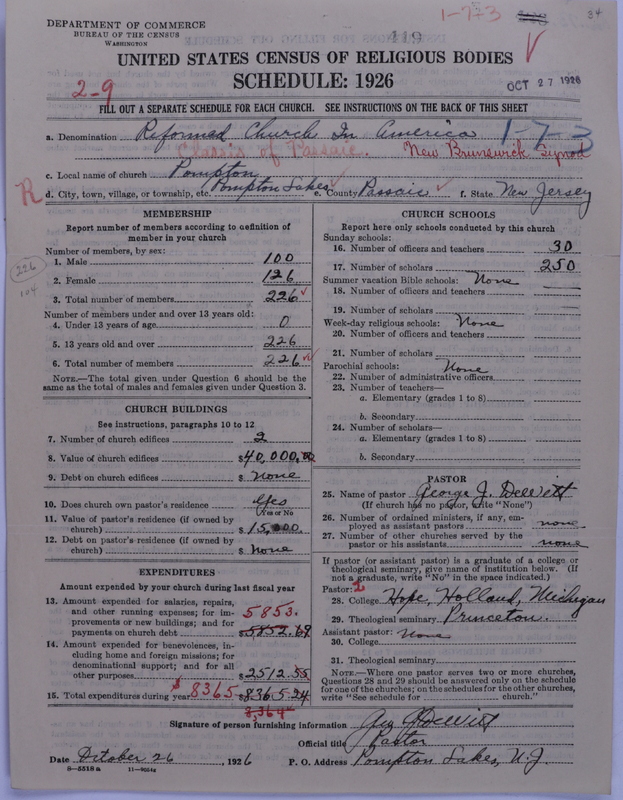 1-7-3
34
DEPARTMENT OF COMMERCE
BUREAU OF THE CENSUS
WASHINGTON
119
UNITED STATES CENSUS OF RELIGIOUS BODIES
SCHEDULE: 1926
OCT 27 1926
2-9
FILL OUT A SEPARATE SCHEDULE FOR EACH CHURCH. SEE INSTRUCTIONS ON THE BACK OF THIS SHEET
a. Denomination Reformed Church In America 1-7-3
Classis of Passaic. New Brunswick Synod
c. Local name of church Pompton
R d. City, town, village, or township, etc. Pompton Lakes e. County Passaic f. State New Jersey
MEMBERSHIP
Report number of members according to definition of
member in your church
Number of members, by sex:
1. Male 100
226
104
2. Female 126
3. Total number of members 226
Number of members under and over 13 years old:
4. Under 13 years of age 0
5. 13 years old and over 226
6. Total number of members 226
NOTE.—The total given under Question 6 should be the
same as the total of males and females given under Question 3.
CHURCH BUILDINGS
See instructions, paragraphs 10 to 12
7. Number of church edifices 2
8. Value of church edifices $40,000.00
9. Debt on church edifices $ None
10. Does church own pastor's residence Yes
Yes or No
11. Value of pastor's residence (if owned by
church) $15,000
12. Debt on pastor's residence (if owned by
church) $ None
EXPENDITURES
Amount expended by your church during last fiscal year
13. Amount expended for salaries, repairs,
and other running expenses; for im-
provements or new buildings; and for
payments on church debt 5853. $5852.69
14. Amount expended for benevolences, in-
cluding home and foreign missions; for
denominational support; and for all
other purposes $2512.55
15. Total expenditures during year $8365 8365.24
8,364
CHURCH SCHOOLS
Report here only schools conducted by this church
Sunday schools:
16. Number of officers and teachers 30
17. Number of scholars 250
Summer vacation Bible schools: None
18. Number of officers and teachers
19. Number of scholars
Week-day religious schools: None
20. Number of officers and teachers
21. Number of scholars
Parochial schools: None
22. Number of administrative officers
23. Number of teachers—
a. Elementary (grades 1 to 8)
b. Secondary
24. Number of scholars—
a. Elementary (grades 1 to 8)
b. Secondary
PASTOR
25. Name of pastor George J. DeWitt
(If church has no pastor, write "None")
26. Number of ordained ministers, if any, em-
ployed as assistant pastors none
27. Number of other churches served by the
pastor or his assistants none
If pastor (or assistant pastor) is a graduate of a college or
theological seminary, give name of institution below. (If
not a graduate, write "No" in the space indicated.)
Pastor: 1
28. College Hope, Holland, Michigan
29. Theological seminary Princeton.
Assistant pastor: None
30. College
31. Theological seminary
NOTE.—Where one pastor serves two or more churches,
Questions 28 and 29 should be answered only on the schedule
for one of the churches; on the schedules for the other churches,
write "See schedule for church."
Signature of person furnishing information Geo J DeWitt
Official title Pastor
Date October 26, 1926 P. O. Address Pompton Lakes, N.J.
8-5518a 11-9051g